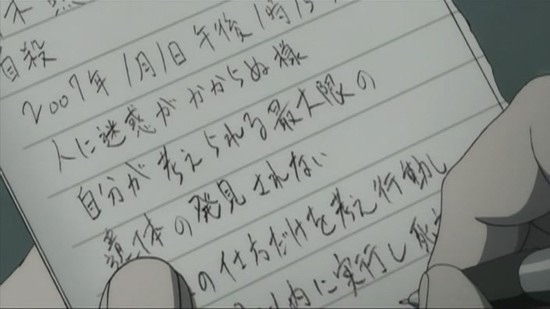 自殺
2007年1月1日午後1時15
人に迷惑がかからぬ様
自分が考えられる最大限の
遺体の発見されない
の仕方だけを考え行動し
以内に実行し死